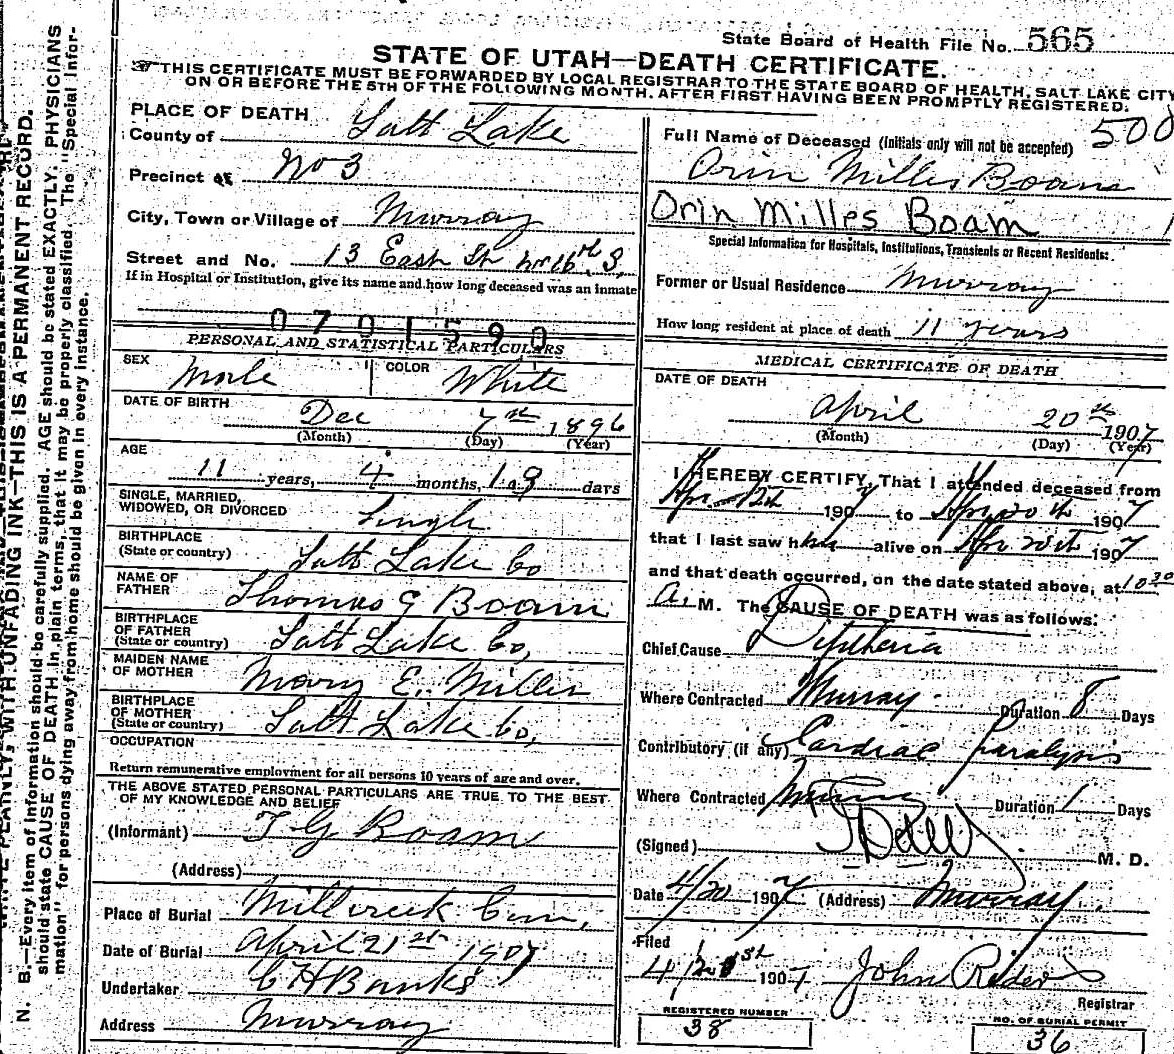 State Board of Health File No. 565
STATE OF UTAH—DEATH CERTIFICATE.
THIS CERTIFICATE MUST BE FORWARDED BY LOCAL REGISTRAR TO THE STATE BOARD OF HEALTH, SALT LAKE CITY
ON OR BEFORE THE 5TH OF THE FOLLOWING MONTH, AFTER FIRST HAVING BEEN PROMPTLY REGISTERED.
PLACE OF DEATH
County of Salt Lake
Precinct of No 3
City, Town or Village of Murray
Street and No. 13 East St nr 16th S,
If in Hospital or Institution, give its name and how long deceased was an inmate
0701590
PERSONAL AND STATISTICAL PARTICULARS
SEX Male COLOR White
DATE OF BIRTH Dec 7st 1896
(Month) (Day) (Year)
AGE
11 years, 4 months, days
SINGLE, MARRIED,
WIDOWED, OR DIVORCED Single
BIRTHPLACE
(State or country) Salt Lake Co
NAME OF
FATHER Thomas G Boam
BIRTHPLACE
OF FATHER
(State or country) Salt Lake Co,
MAIDEN NAME
OF MOTHER Mary E. Miller
BIRTHPLACE
OF MOTHER
(State or country) Salt Lake Co,
OCCUPATION
Return remunerative employment for all persons 10 years of age and over.
THE ABOVE STATED PERSONAL PARTICULARS ARE TRUE TO THE BEST
OF MY KNOWLEDGE AND BELIEF
(Informant) T G Boam
(Address)
Place of Burial Millcreek Cem,
Date of Burial April 21st 1907
Undertaker C H Banks
Address Murray
500
Full Name of Deceased (Initials only will not be accepted)
Orin Milles Boam
Orin Milles Boam 1
Special Information for Hospitals, Institutions, Transients or Recent Residents:
Former or Usual Residence Murray
How long resident at place of death 11 years
MEDICAL CERTIFICATE OF DEATH
DATE OF DEATH
April 20th 1907
(Month) (Day) (Year)
I HEREBY CERTIFY, That I attended deceased from
Apr. 12th 1907 to Apr 20th 1907
that I last saw him alive on Apr 20th 1907
and that death occurred, on the date stated above, at 10 30
A. M. The CAUSE OF DEATH was as follows:
Chief Cause Diptheria
Where Contracted Murray Duration 8 Days
Contributory (if any) Cardiac Paralysis
Where Contracted Murray Duration 1 Days
(Signed) M. D.
Date 4/20 1907 (Address) Murray.
Filed
4/21st 1907 John Rider
Registrar
REGISTERED NUMBER
38
NO. OF BURIAL PERMIT
36
N. B.—Every item of Information should be carefully supplied. AGE should be stated EXACTLY. PHYSICIANS
should state CAUSE OF DEATH in plain terms, that it may be properly classified. The "Special Infor-
mation" for persons dying away from home should be given in every instance.
WRITE PLAINLY, WITH UNFADING INK—THIS IS A PERMANENT RECORD.